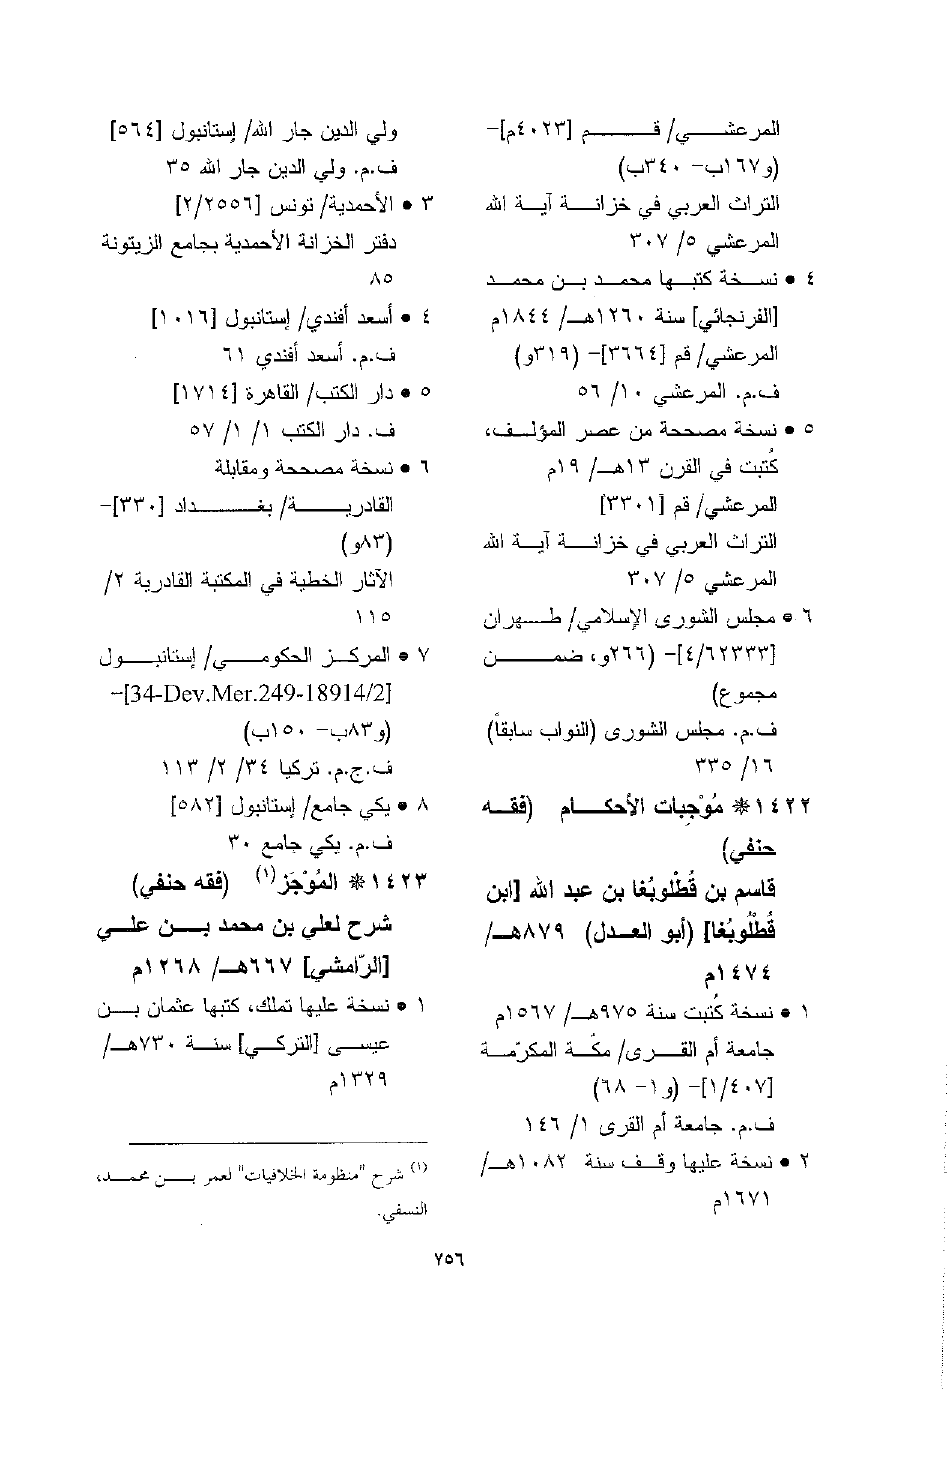 المرعشي/ قم [٤٠٢٣م]-
(و١٦٧ب- ٣٤٠ب)
التراث العربي في خزانة آية الله
المرعشي ٥/ ٣٠٧
٤ • نسخة كتبها محمد بن محمد
[الفرنجائي] سنة ١٢٦٠هـ/ ١٨٤٤م
المرعشي/ قم [٣٦٦٤]- (٣١٩و)
ف.م. المرعشي ١٠/ ٥٦
٥ • نسخة مصححة من عصر المؤلف،
كُتبت في القرن ١٣هـ/ ١٩م
المرعشي/ قم [٣٣٠١]
التراث العربي في خزانة آية الله
المرعشي ٥/ ٣٠٧
٦ • مجلس الشورى الإسلامي/ طهران
[٤/٦٢٣٣٣]- (٢٦٦و، ضمن
مجموع)
ف.م. مجلس الشورى (النواب سابقاً)
١٦/ ٣٣٥
١٤٢٢* مُوْجبات الأحكام (فقه
حنفي)
قاسم بن قُطْلوبُغا بن عبد الله [ابن
قُطْلُوبُغا] (أبو العدل) ٨٧٩هـ/
١٤٧٤م
١ • نسخة كُتبت سنة ٩٧٥هـ/ ١٥٦٧م
جامعة أم القرى/ مكّة المكرّمة
[١/٤٠٧]- (و١- ٦٨)
ف.م. جامعة أم القرى ١/ ١٤٦
٢ • نسخة عليها وقف سنة ١٠٨٢هـ/
١٦٧١م
ولي الدين جار الله/ إستانبول [٥٦٤]
ف.م. ولي الدين جار الله ٣٥
٣ • الأحمدية/ تونس [٢/٢٥٥٦]
دفتر الخزانة الأحمدية بجامع الزيتونة
٨٥
٤ • أسعد أفندي/ إستانبول [١٠١٦]
ف.م. أسعد أفندي ٦١
٥ • دار الكتب/ القاهرة [١٧١٤]
ف. دار الكتب ١/ ١/ ٥٧
٦ • نسخة مصححة ومقابلة
القادرية/ بغداد [٣٣٠]-
(٨٣و)
الآثار الخطية في المكتبة القادرية ٢/
١١٥
٧ • المركز الحكومي/ إستانبول
[34-Dev.Mer.249-18914/2]-
(و٨٣ب- ١٥٠ب)
ف.ج.م. تركيا ٣٤/ ٢/ ١١٣
٨ • يكي جامع/ إستانبول [٥٨٢]
ف.م. يكي جامع ٣٠
١٤٢٣* المُوْجَز(١) (فقه حنفي)
شرح لعلي بن محمد بن علي
[الرّامشي] ٦٦٧هـ/ ١٢٦٨م
١ • نسخة عليها تملك، كتبها عثمان بن
عيسى [التركي] سنة ٧٣٠هـ/
١٣٢٩م
(١) شرح "منظومة الخلافيات" لعمر بن محمد،
النسفي.
٧٥٦